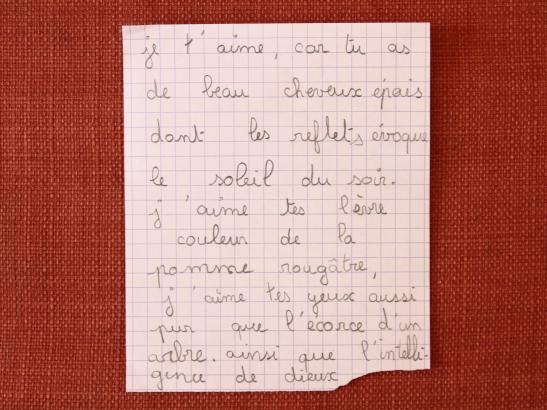 je t'aime, car tu as
de beau cheveux épais
dont les reflets évoque
le soleil du soir.
j'aime tes lèvre
couleur de la
pomme rougâtre,
j'aime tes yeux aussi
pur que l'écorce d'un
arbre. ainsi que l'intelli-
gence de dieux